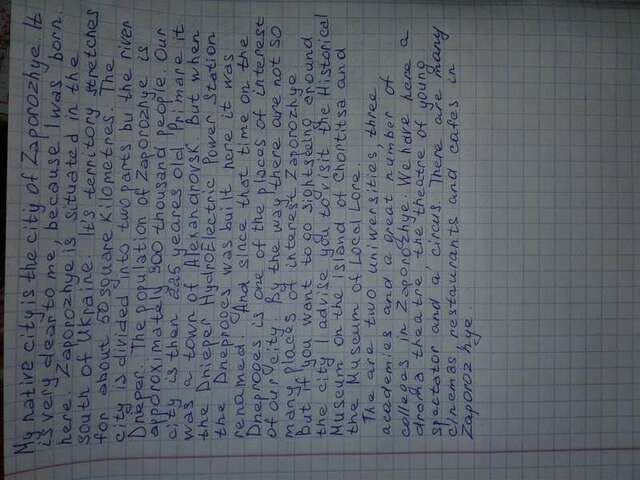 My native city is the city of Zaporozhye. It
is very dear to me, because I was born
here. Zaporozhye is situated in the
south of Ukraine. It's territory stretches
for about 50 square kilometres. The
city is divided into two parts bu the river
Dneper. The population of Zaporozhye is
approximately 900 thousand people. Our
city is then 225 yeares old. Primare it
was a town of Alexandrovsk. But when
the Dnieper HydroElectric Power Station
the Dneproges was built here it was
renamed. And since that time on the
Dneproges is one of the places of interest
of our city. By the way there are not so
many places of interest Zaporozhye
but if you want to go sightseing eround
the city I advise you to visit the Historical
Museum on the island of Chortitsa and
the Museum of Local Lore.
The are two uniwersities, three
academies and a great number of
colleges in Zaporozhye. We have here a
drama theatre the theatre of young
spectator and a circus. There are many
cinemas restaurants and cafes in
Zaporozhye.